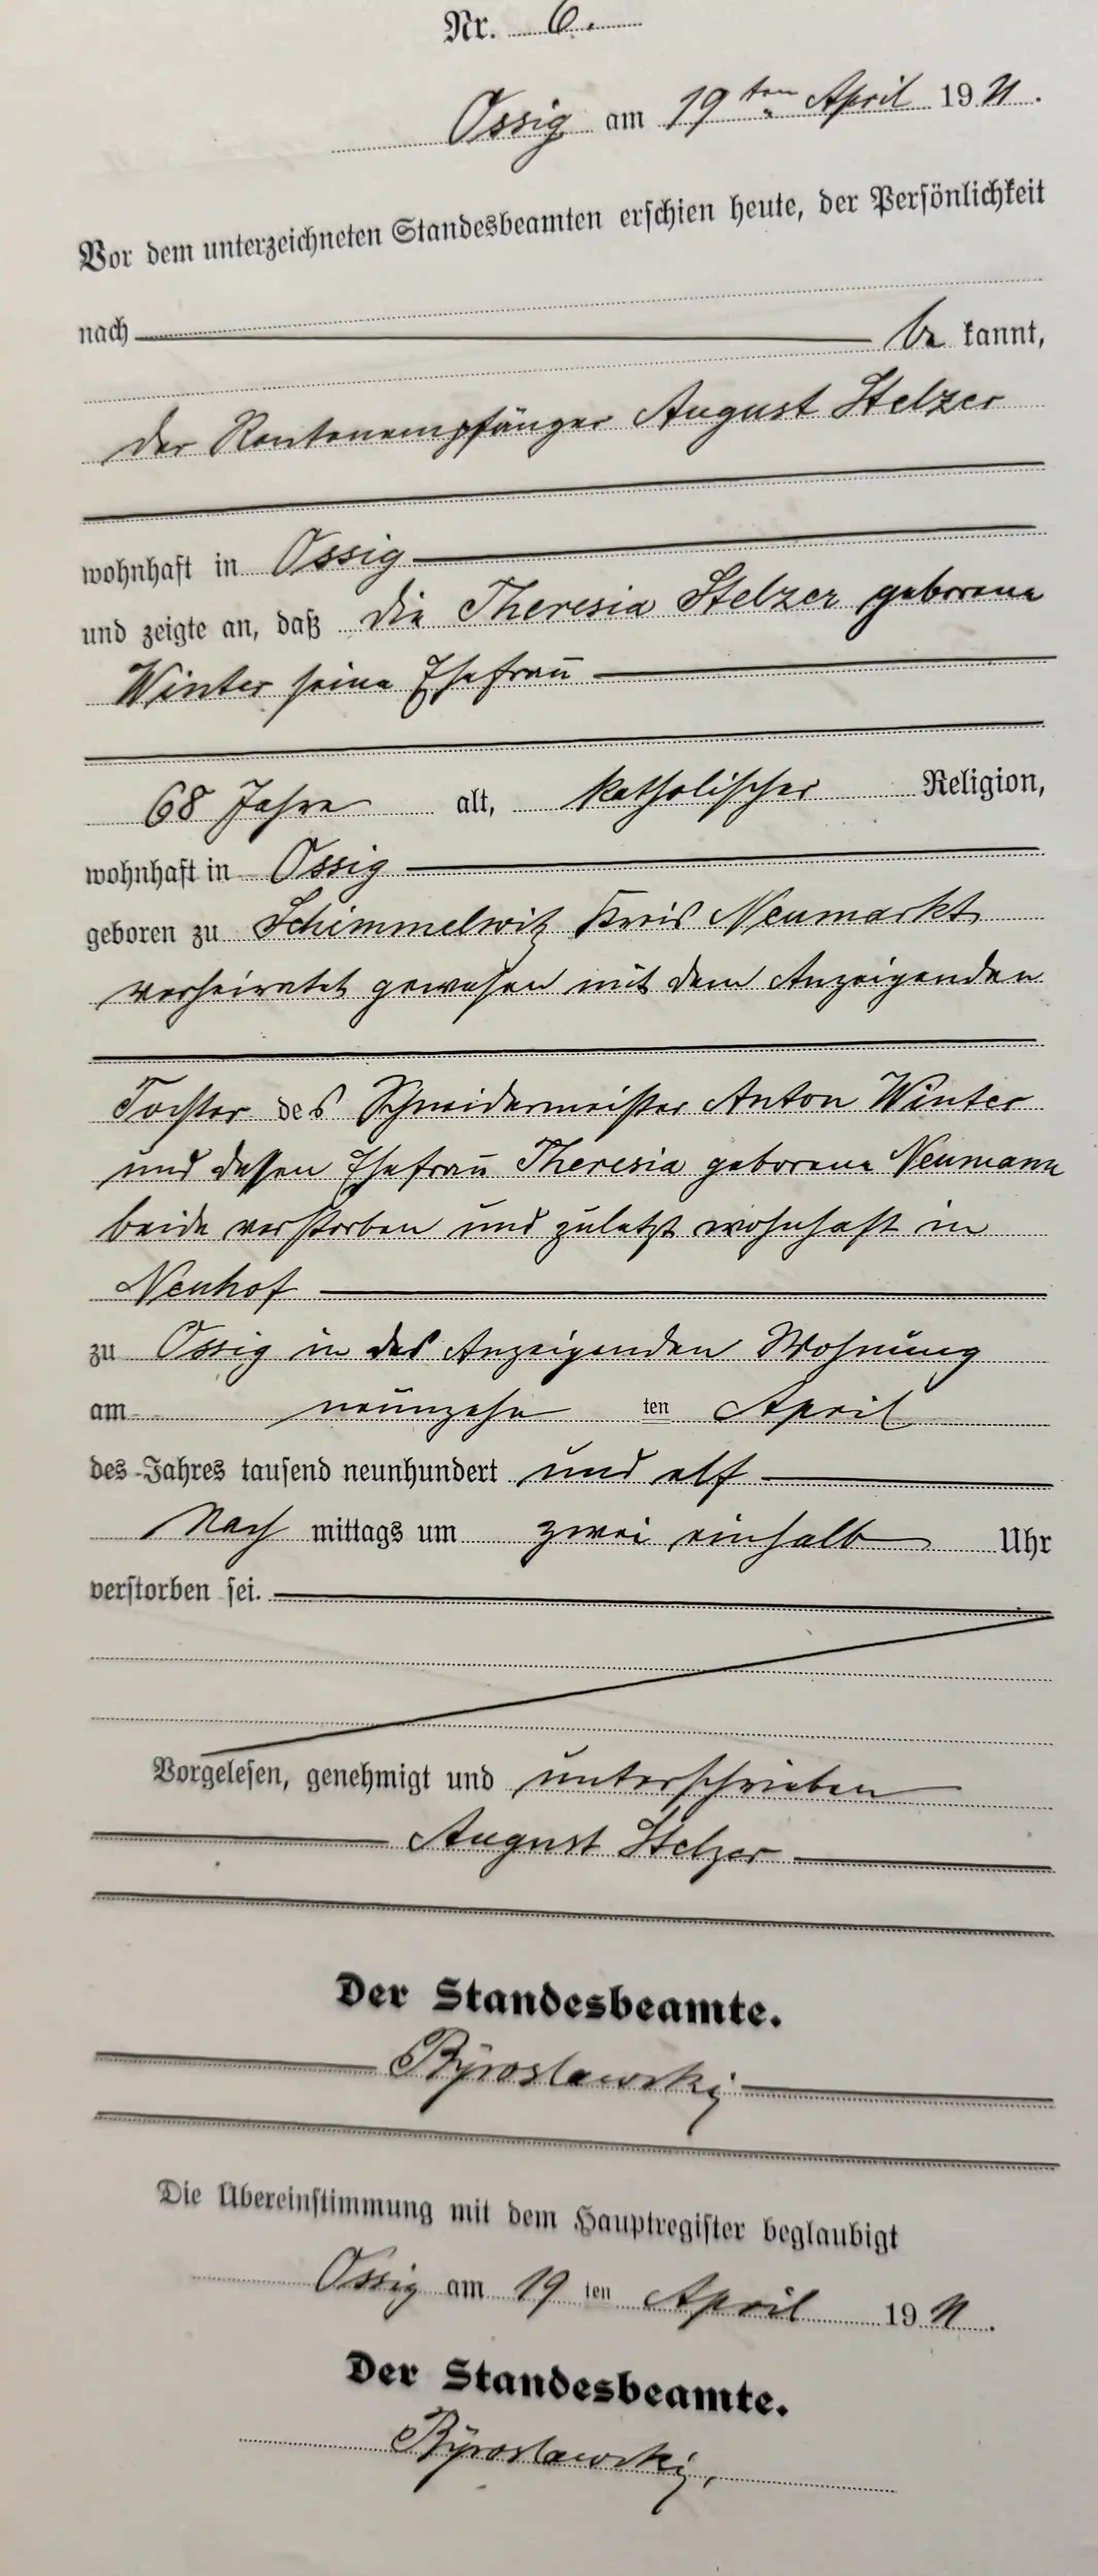 Nr. 6.
Ossig am 19ten April 1911.
Vor dem unterzeichneten Standesbeamten erschien heute, der Persönlichkeit
nach be kannt,
der Rentenempfänger August Stelzer
wohnhaft in Ossig
und zeigte an, daß die Theresia Stelzer geborene
Winter seine Ehefrau
68 Jahre alt, katholischer Religion,
wohnhaft in Ossig
geboren zu Schimmelwitz Kreis Neumarkt
verheiratet gewesen mit dem Anzeigenden
Tochter des Schneidermeister Anton Winter
und dessen Ehefrau Theresia geborene Neumann
beide verstorben und zuletzt wohnhaft in
Neuhof
zu Ossig in des Anzeigenden Wohnung
am neunzehn ten April
des Jahres tausend neunhundert und elf
Nach mittags um zwei einhalb Uhr
verstorben sei.
Vorgelesen, genehmigt und unterschrieben
August Stelzer
Der Standesbeamte.
Die Übereinstimmung mit dem Hauptregister beglaubigt
Ossig am 19 ten April 1911.
Der Standesbeamte.